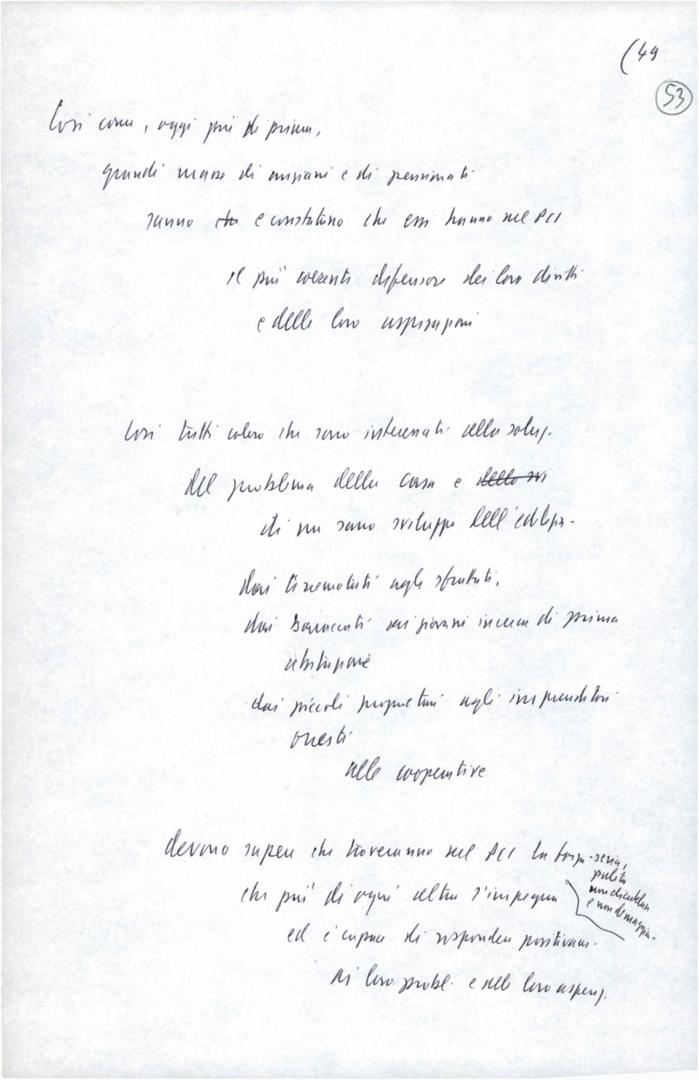 (49
53
Così come, oggi più di prima,
grandi masse di anziani e di pensionati
sanno che e constatano che essi hanno nel PCI
il più coerente difensore dei loro diritti
e delle loro aspirazioni
Così tutti coloro che sono interessati alla soluz.
del problema della casa e dello svi
di un sano sviluppo dell'edilizia
dai terremotati agli sfrattati,
dai baraccati ai giovani in cerca di prima
abitazione
dai piccoli proprietari agli imprenditori
onesti
alle cooperative
devono sapere che troveranno nel PCI la forza seria,
pulita
non clientelare
e non demagogica
che più di ogni altra s'impegna
ed è capace di rispondere positivam.
ai loro probl. e alle loro aspiraz.